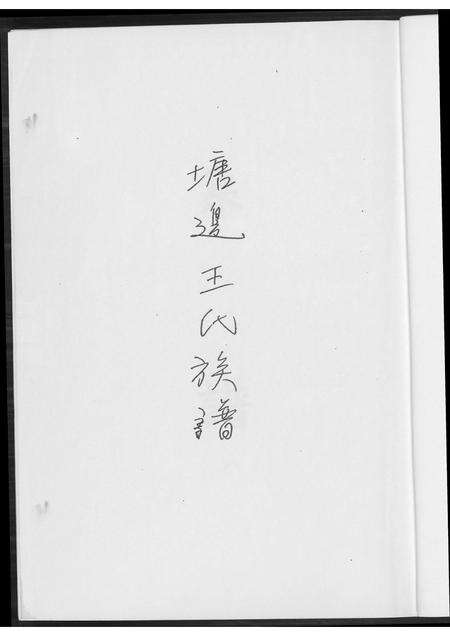 塘邊王氏族譜